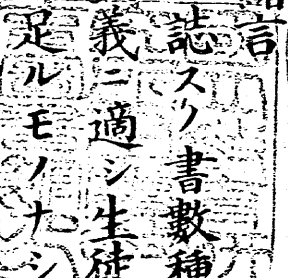 言
誌スノ書數種
義ニ適シ生徒
足ルモノナシ